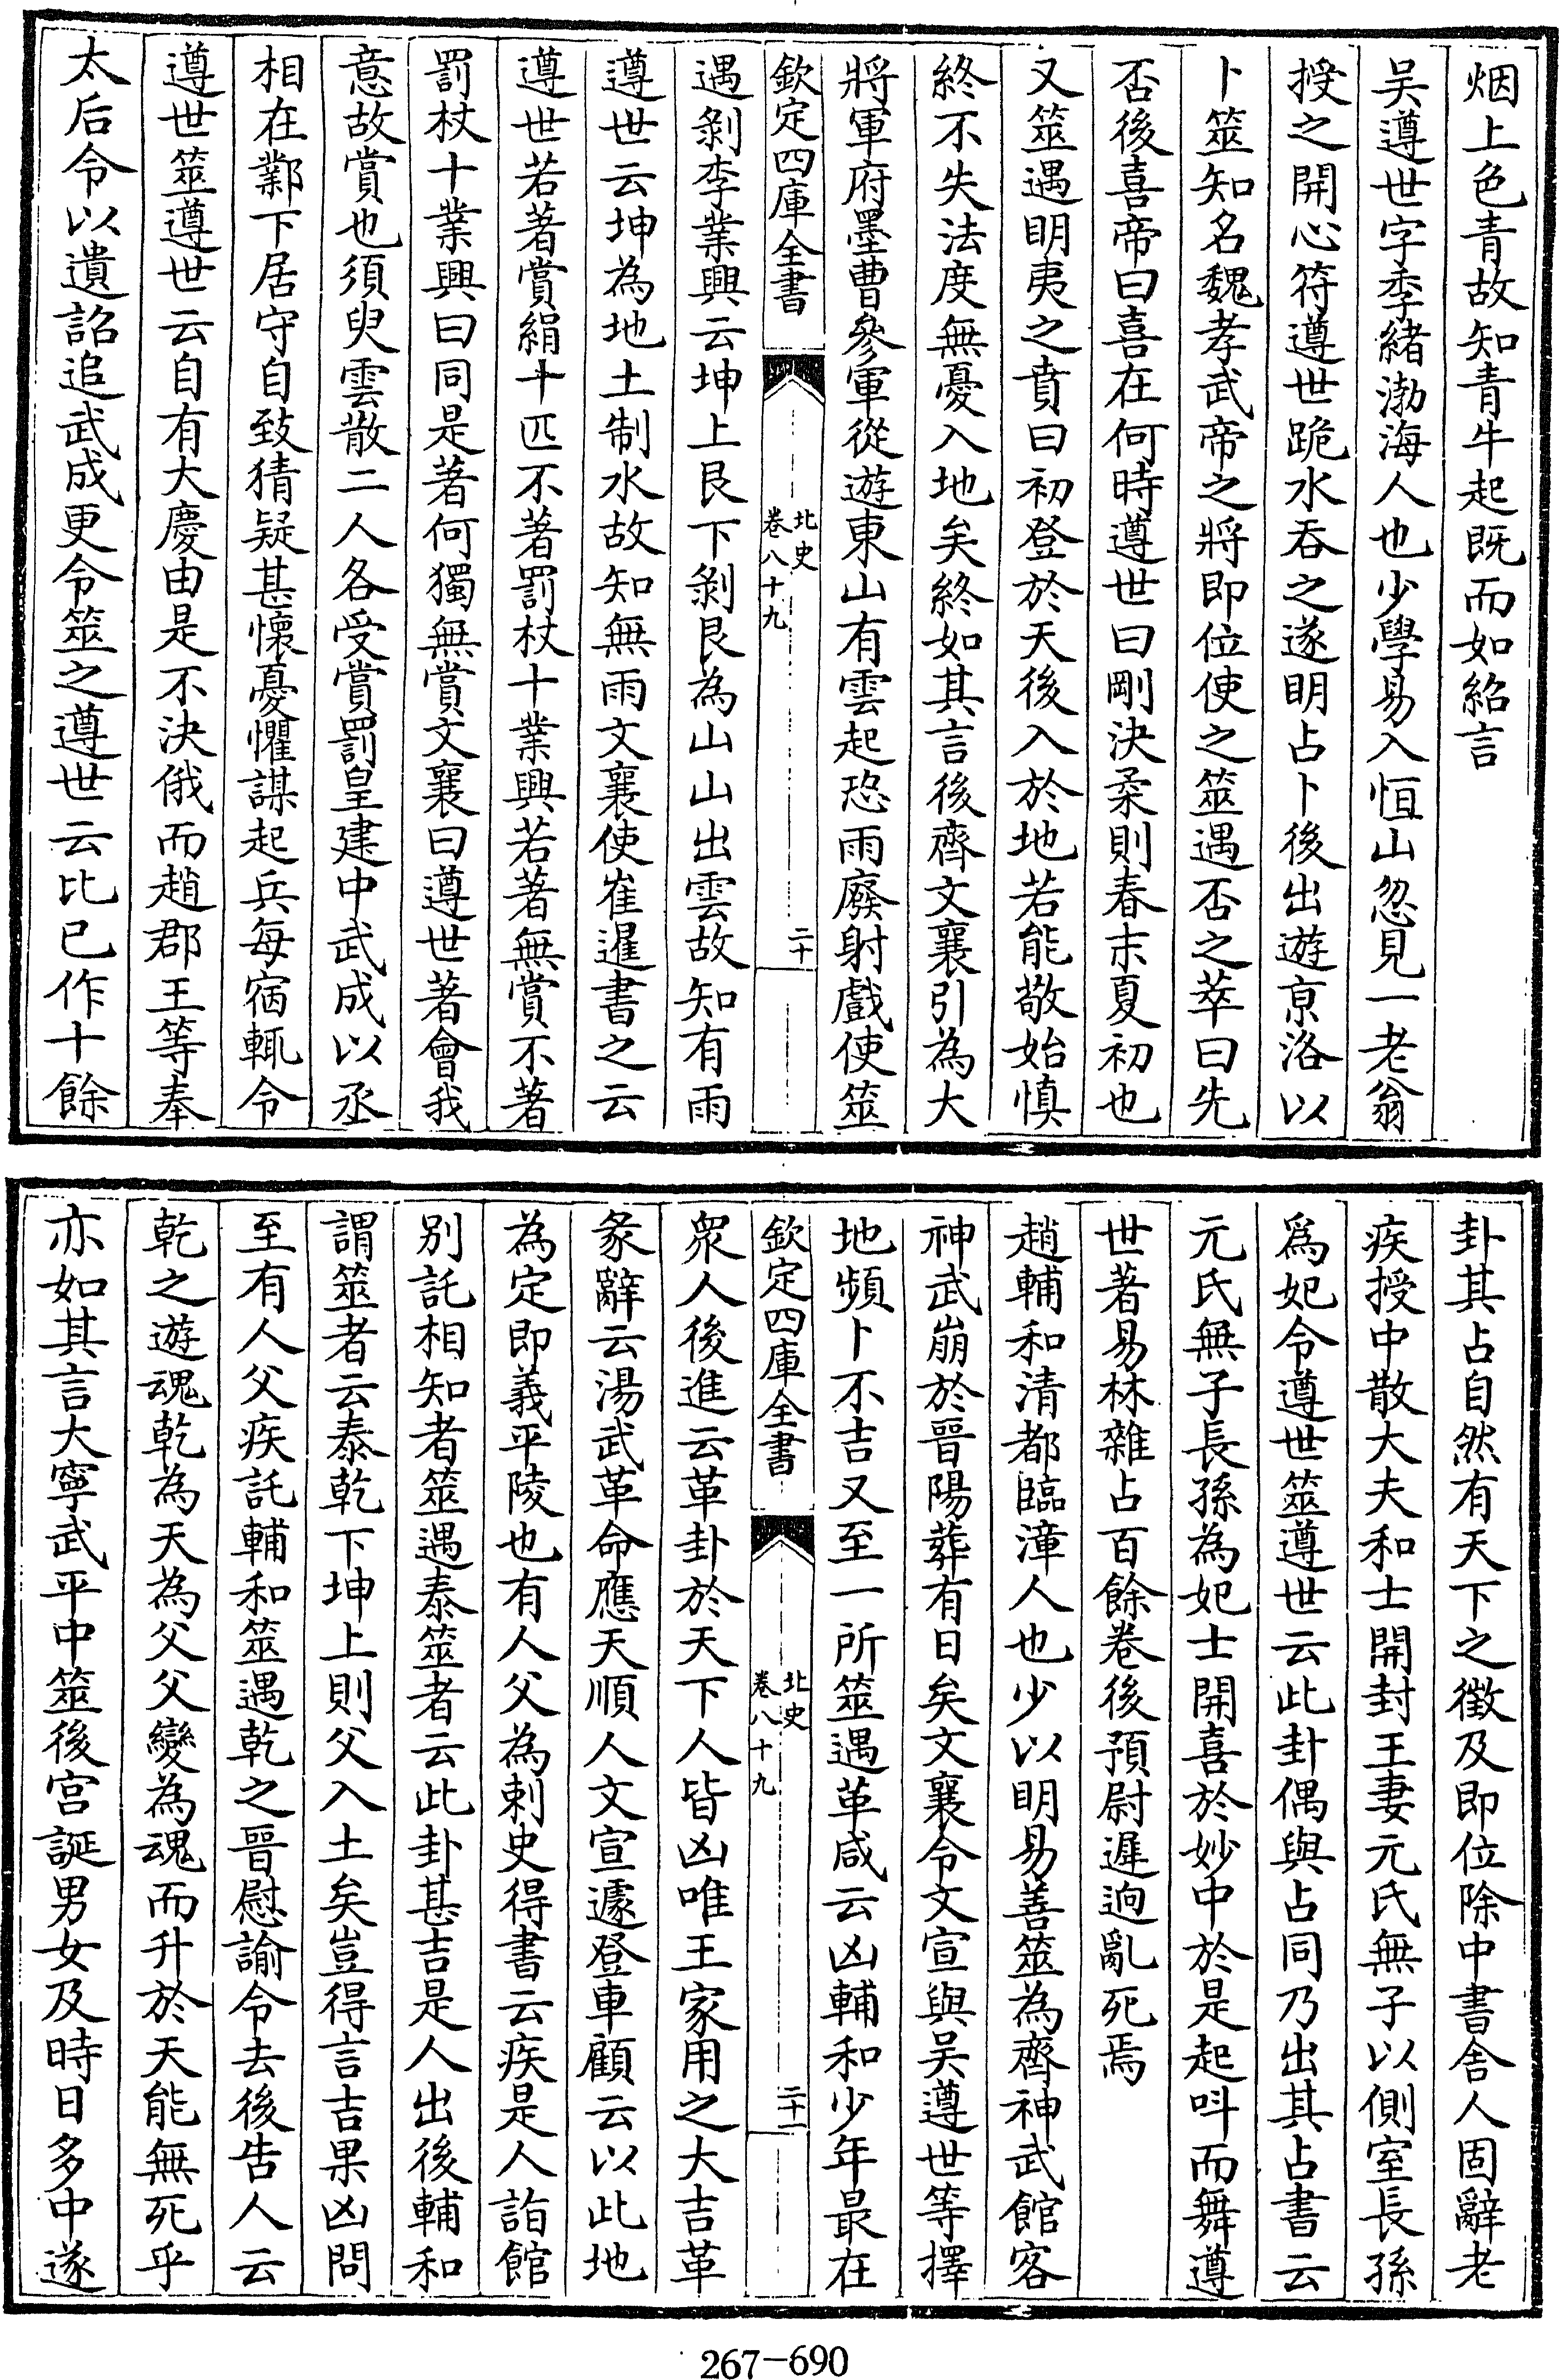 烟上色青故知青牛起既而如紹言
吳遵世字季緒渤海人也少學易入恒山忽見一老翁
授之開心符遵世跪水吞之遂明占卜後出遊京洛以
卜筮知名魏孝武帝之將即位使之筮遇否之萃曰先
否後喜帝曰喜在何時遵世曰剛決柔則春末夏初也
又筮遇明夷之賁曰初登於天後入於地若能敬始慎
終不失法度無憂入地矣終如其言後齊文襄引為大
將軍府墨曹參軍從遊東山有雲起恐雨廢射戲使筮
欽定四庫全書
北史
卷八十九
二十
遇剝李業興云坤上艮下剝艮為山山出雲故知有雨
遵世云坤為地土制水故知無雨文襄使崔暹書之云
遵世若著賞絹十匹不著罰杖十業興若著無賞不著
罰杖十業興曰同是著何獨無賞文襄曰遵世著會我
意故賞也須臾雲散二人各受賞罰皇建中武成以丞
相在鄴下居守自致猜疑甚懷憂懼謀起兵每宿輒令
遵世筮遵世云自有大慶由是不決俄而趙郡王等奉
太后令以遺詔追武成更令筮之遵世云比已作十餘
卦其占自然有天下之徵及即位除中書舍人固辭老
疾授中散大夫和士開封王妻元氏無子以側室長孫
爲妃令遵世筮遵世云此卦偶與占同乃出其占書云
元氏無子長孫為妃士開喜於妙中於是起呌而舞遵
世著易林雜占百餘卷後預尉遲逈亂死焉
趙輔和清都臨漳人也少以明易善筮為齊神武館客
神武崩於晉陽葬有日矣文襄令文宣與吳遵世等擇
地頻卜不吉又至一所筮遇革咸云凶輔和少年最在
欽定四庫全書
北史
卷八十九
二十一
衆人後進云革卦於天下人皆凶唯王家用之大吉革
彖辭云湯武革命應天順人文宣遽登車顧云以此地
為定即義平陵也有人父為刺史得書云疾是人詣館
別託相知者筮遇泰筮者云此卦甚吉是人出後輔和
謂筮者云泰乾下坤上則父入土矣豈得言吉果凶問
至有人父疾託輔和筮遇乾之晉慰諭令去後告人云
乾之遊魂乾為天為父父變為魂而升於天能無死乎
亦如其言大寧武平中筮後宮誕男女及時日多中遂
267-690